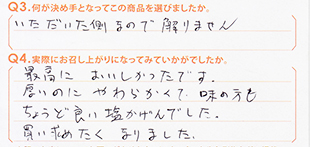 Q3.何が決め手となってこの商品を選びましたか。
いただいた側なので解りません
Q4.実際にお召し上がりになってみていかがでしたか。
最高においしかったです。
厚いのにやわらかくて、味の方も
ちょうど良い塩かげんでした。
買い求めたくなりました。